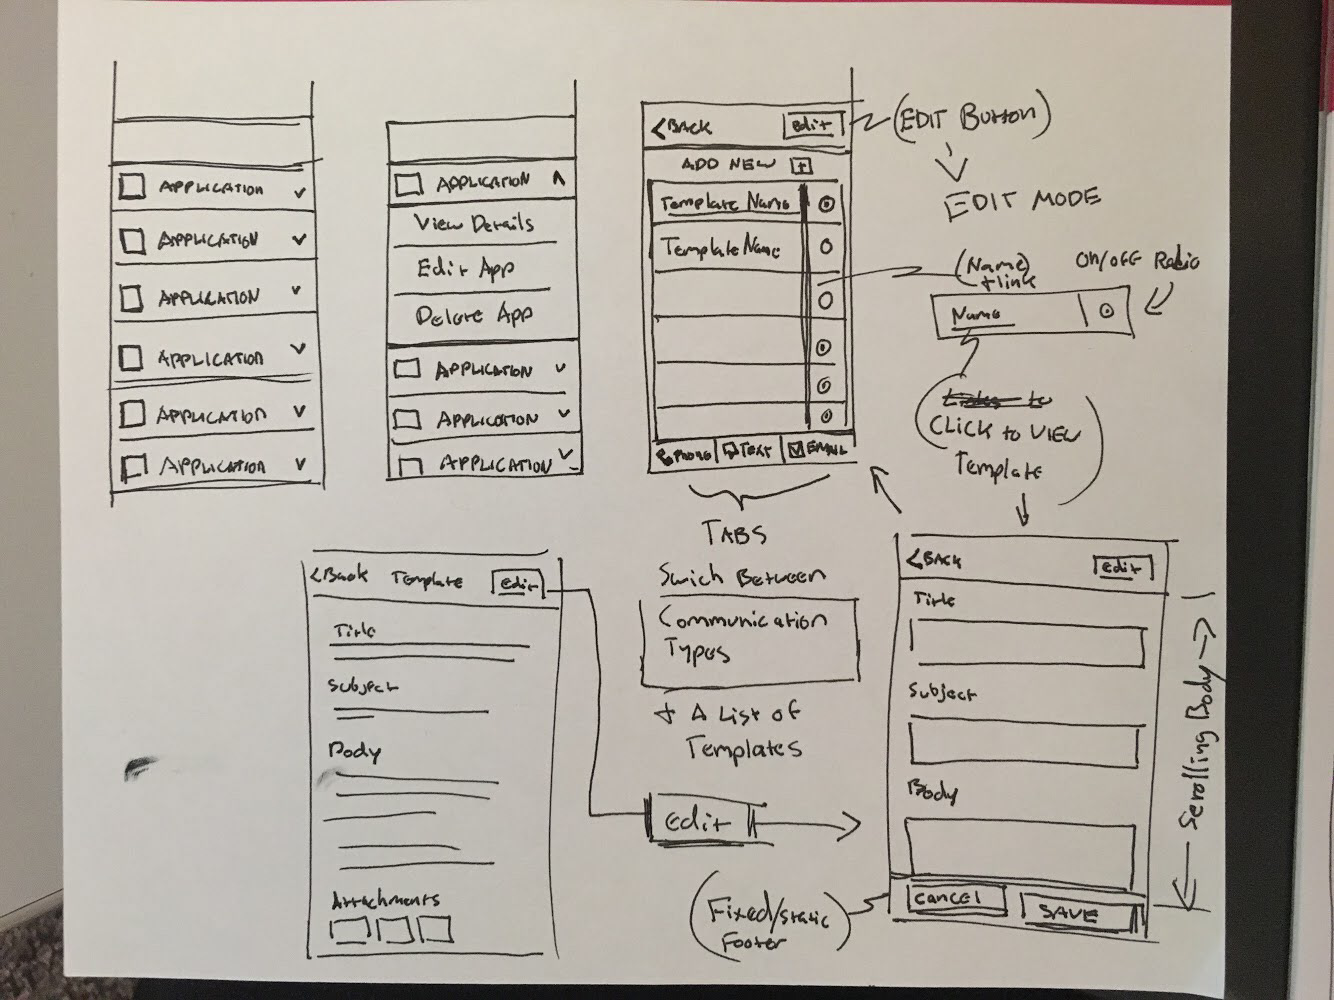 APPLICATION
APPLICATION
APPLICATION
APPLICATION
APPLICATION
APPLICATION
APPLICATION
View Details
Edit App
Delete App
APPLICATION
APPLICATION
APPLICATION
<BACK edit
ADD NEW +
Template Name
Template Name
PHONE TEXT EMAIL
TABS
Swich Between
Communication
Types
+ A List of
Templates
(EDIT Button)
EDIT MODE
(Name)
+link
On/off Radio
Name
CLICK to VIEW
Template
<Back Template edit
Title
Subject
Body
Attachments
edit
<BACK edit
Title
Subject
Body
CANCEL SAVE
(Fixed/static
Footer)
Scrolling Body